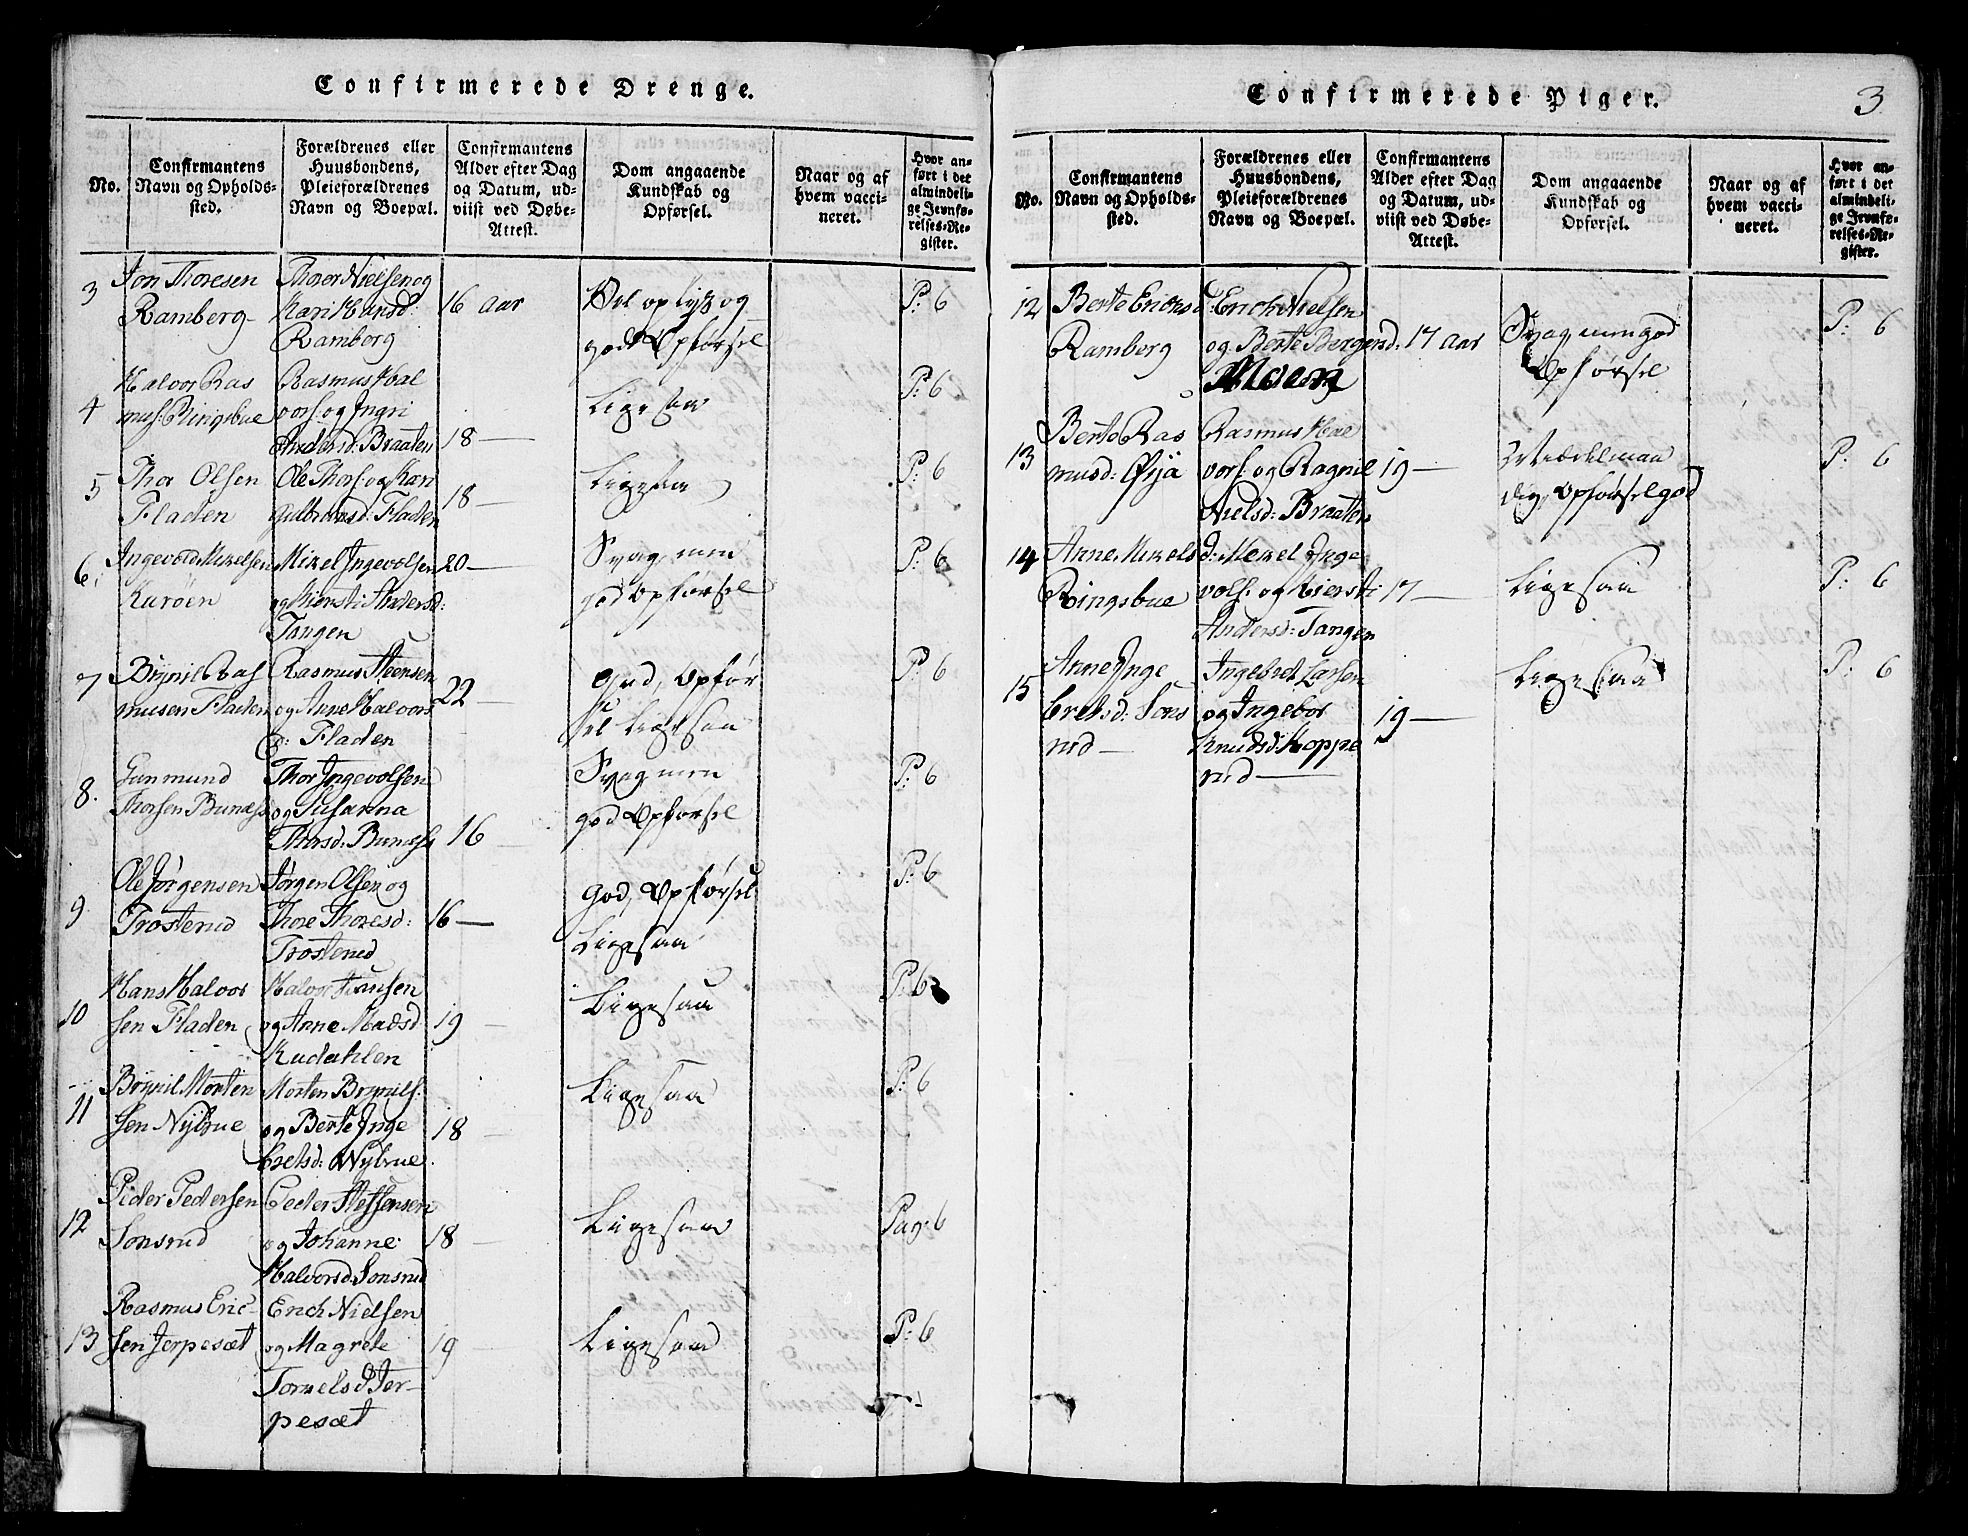 Confirmerede Drenge.
No.
Confirmantens
Navn og Opholds-
sted.
Forældrenes eller
Huusbondens,
Pleieforældrenes
Navn og Boepæl.
Confirmantens
Alder efter Dag
og Datum, ud-
viist ved Døbe-
Attest.
Dom angaaende
Kundskab og
Opførsel.
Naar og af
hvem vacci-
neret.
Hvor an-
ført i det
almindeli-
ge Jevnfø-
relses-Re-
gister.
3
Jon Thoresen
Ramberg
Thoer Nielsen og
Kari Hansd:
Ramberg
16 aar
Vel oplyst og
god Opførsel
P: 6
4
Halvor Ras
mus: Ringsbue
Rasmus Hal
vors: og Ingri
Andersd: Braaten
18 —
Ligesaa
P: 6
5
Thor Olsen
Fladen
Ole Thors: og Kari
Gulbransd: Fladen
18 —
Ligesaa
P: 6
6
Ingevold Mikelsen
Kuröen
Mikel Ingevolsen
og Kiersti Andersd:
Tangen
20 —
Svag, men
god Opførsel
P: 6
7
Brynil Ras
musen Fladen
Rasmus Steensen
og Anne Halvors
d: Fladen
22 —
God, Opfør
sel Ligesaa
P: 6
8.
Gunmund
Thorsen Bunæss
Thor Ingevolsen
og Susanna
Thorsd: Bunæss
16 —
Svag men
god Opførsel
P: 6
9
Ole Jørgensen
Trosterud
Jørgen Olsen og
Thore Thoresd:
Trosterud
16 —
God, Opførsel
Ligesaa
P: 6
10
Hans Halvor
sen Fladen
Halvor Hansen
og Anne Madsd
Kudahlen
19 —
Ligesaa
P: 6
11
Brynil Morten
sen Nybrue
Morten Brynils:
og Berte Inge
bretsd: Nybrue
18 —
Ligesaa
P: 6
12
Peder Pedersen
Sonsrud
Peder Steffensen
og Johanne
Halvorsd: Sonsrud
18 —
Ligesaa
Pag: 6
13
Rasmus Eric-
sen Jerpesæt
Erich Nielsen
og Magrete
Tornelsd Jer-
pesæt
19 —
Ligesaa
P: 6
Confirmerede Piger.
3
No.
Confirmantens
Navn og Opholds-
sted.
Forældrenes eller
Huusbondens,
Pleieforældrenes
Navn og Boepæl.
Confirmantens
Alder efter Dag
og Datum, ud-
viist ved Døbe-
Attest.
Dom angaaende
Kundskab og
Opførsel.
Naar og af
hvem vacci-
neret.
Hvor an-
ført i det
almindeli-
ge Jevnfø-
relses-Re-
gister.
12
Berte Ericks d:
Ramberg
Erich Nielsen
og Berte Bergersd:
Moen
17 aar
Svag, men god
Opførsel
P: 6
13
Berte Ras
musd: Øya
Rasmus Hal
vors: og Ragnil
Nielsd: Braaten
19 —
dig, Opførsel god
P: 6
14
Anne Mikels d:
Ringsbue
Mekel Inge
vols: og Kiersti
Andersd: Tangen
17 —
Ligesaa
P: 6
15
Anne Inge
bretsd: Sons
rud —
Ingebret Larsen
og Ingebor
Knudsd: Hoppe
rud —
19 —
Ligesaa
P: 6